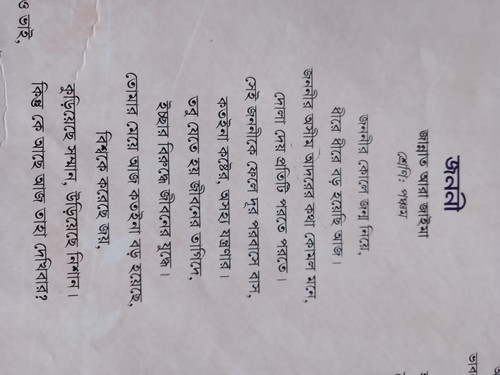 জননী
জান্নাত আরা জাইমা
শ্রেণি: পঞ্চম
জননীর কোলে জন্ম নিয়ে,
ধীরে ধীরে বড় হয়েছি আজ।
জননীর অসীম আদরের কথা কোমল মনে,
দোলা দেয় প্রতিটি পরতে পরতে।
সেই জননীকে ফেলে দূর পরবাসে বাস,
কতইনা কষ্টের, অসহ্য যন্ত্রণার।
তবু যেতে হয় জীবনের তাগিদে,
ইচ্ছার বিরুদ্ধে জীবনের যুদ্ধে।
তোমার মেয়ে আজ কতইনা বড় হয়েছে,
বিশ্বকে করেছে জয়,
কুড়িয়েছে সম্মান, উড়িয়েছে নিশান।
কিন্তু কে আছে আজ তাহা দেখিবার?
ও ভাই,